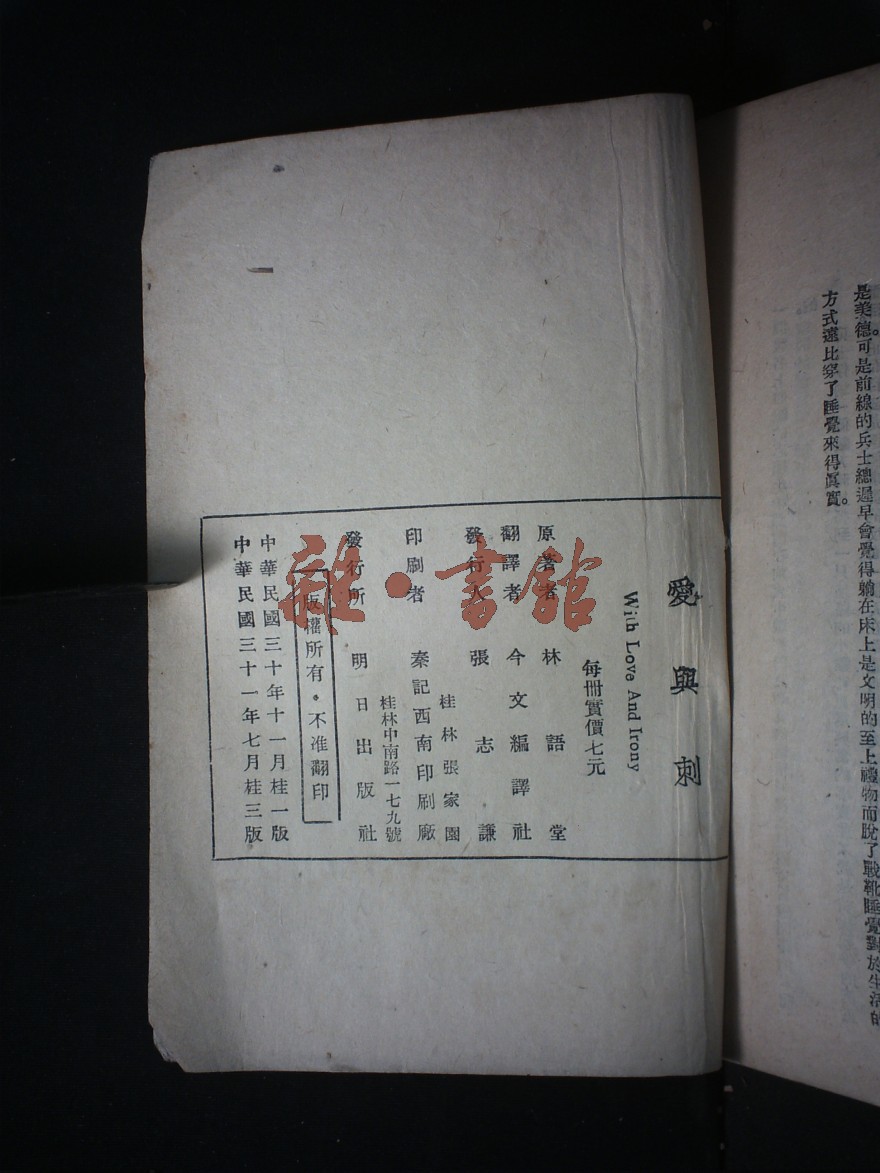 是美德。可是前線的兵士總遲早會覺得躺在床上是文明的至上禮物而脫了戰靴睡覺對於生活的
方式遠比穿了睡覺來得眞實。
愛與刺
With Love And Irony
每冊實價七元
原著者 林語堂
翻譯者 今文編譯社
發行人 張志謙
桂林張家園
印刷者 秦記西南印刷廠
桂林中南路一七九號
發行所 明日出版社
版權所有・不准翻印
中華民國三十年十一月桂一版
中華民國三十一年七月桂三版
雜・書館